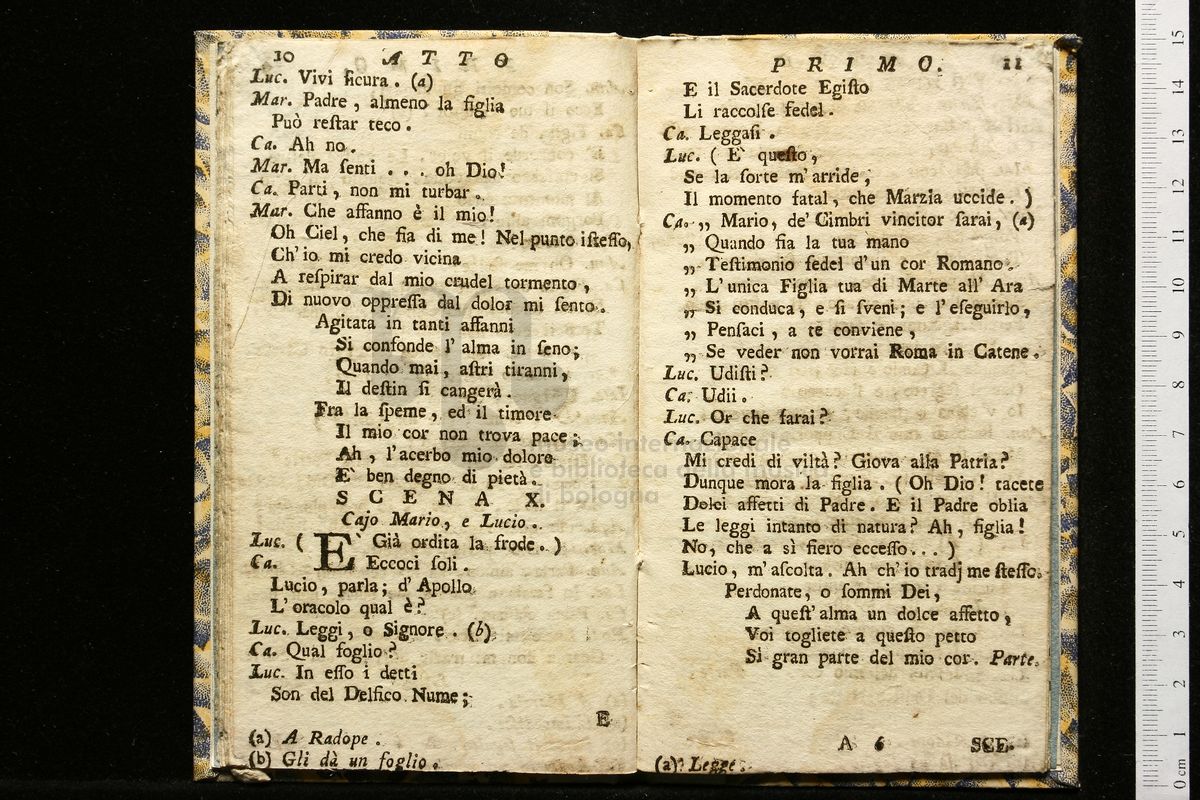 10 ATTO
Luc. Vivi ſicura. (a)
Mar. Padre, almeno la figlia
Può reſtar teco.
Ca. Ah no.
Mar. Ma ſenti... oh Dio!
Ca. Parti, non mi turbar.
Mar. Che affanno è il mio!
Oh Ciel, che fia di me! Nel punto iſteſſo,
Ch'io mi credo vicina
A reſpirar dal mio crudel tormento,
Di nuovo oppreſſa dal dolor mi ſento.
Agitata in tanti affanni
Si confonde l'alma in ſeno;
Quando mai, aſtri tiranni,
Il deſtin ſi cangerà.
Fra la ſpeme, ed il timore
Il mio cor non trova pace;
Ah, l'acerbo mio dolore
E' ben degno di pietà.
SCENA X.
Cajo Mario, e Lucio.
Luc. ( E' Già ordita la frode. )
Ca. Eccoci ſoli.
Lucio, parla; d'Apollo
L'oracolo qual è?
Luc. Leggi, o Signore. (b)
Ca. Qual foglio?
Luc. In eſſo i detti
Son del Delfico Nume;
E
(a) A Radope.
(b) Gli dà un foglio.
PRIMO. 11
E il Sacerdote Egiſto
Li raccolſe fedel.
Ca. Leggaſi.
Luc. ( E' queſto,
Se la ſorte m'arride,
Il momento fatal, che Marzia uccide. )
Ca. „ Mario, de' Cimbri vincitor ſarai, (a)
„ Quando ſia la tua mano
„ Teſtimonio fedel d'un cor Romano.
„ L'unica Figlia tua di Marte all' Ara
„ Si conduca, e ſi ſveni; e l'eſeguirlo,
„ Penſaci, a te conviene,
„ Se veder non vorrai Roma in Catene.
Luc. Udiſti?
Ca. Udii.
Luc. Or che farai?
Ca. Capace
Mi credi di viltà? Giova alla Patria?
Dunque mora la figlia. ( Oh Dio! tacete
Dolci affetti di Padre. E il Padre oblia
Le leggi intanto di natura? Ah, figlia!
No, che a sì fiero ecceſſo... )
Lucio, m'aſcolta. Ah ch'io tradj me ſteſſo.
Perdonate, o ſommi Dei,
A queſt'alma un dolce affetto,
Voi togliete a queſto petto
Sì gran parte del mio cor. Parte.
A 6 SCE-
(a) Legge.